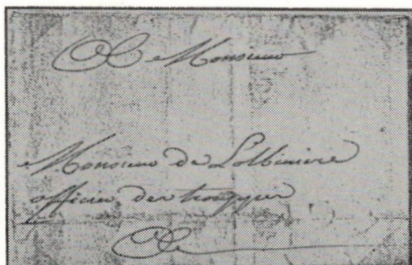 A Monsieur
Monsieur de Lotbiniere
officier des trouppes
A